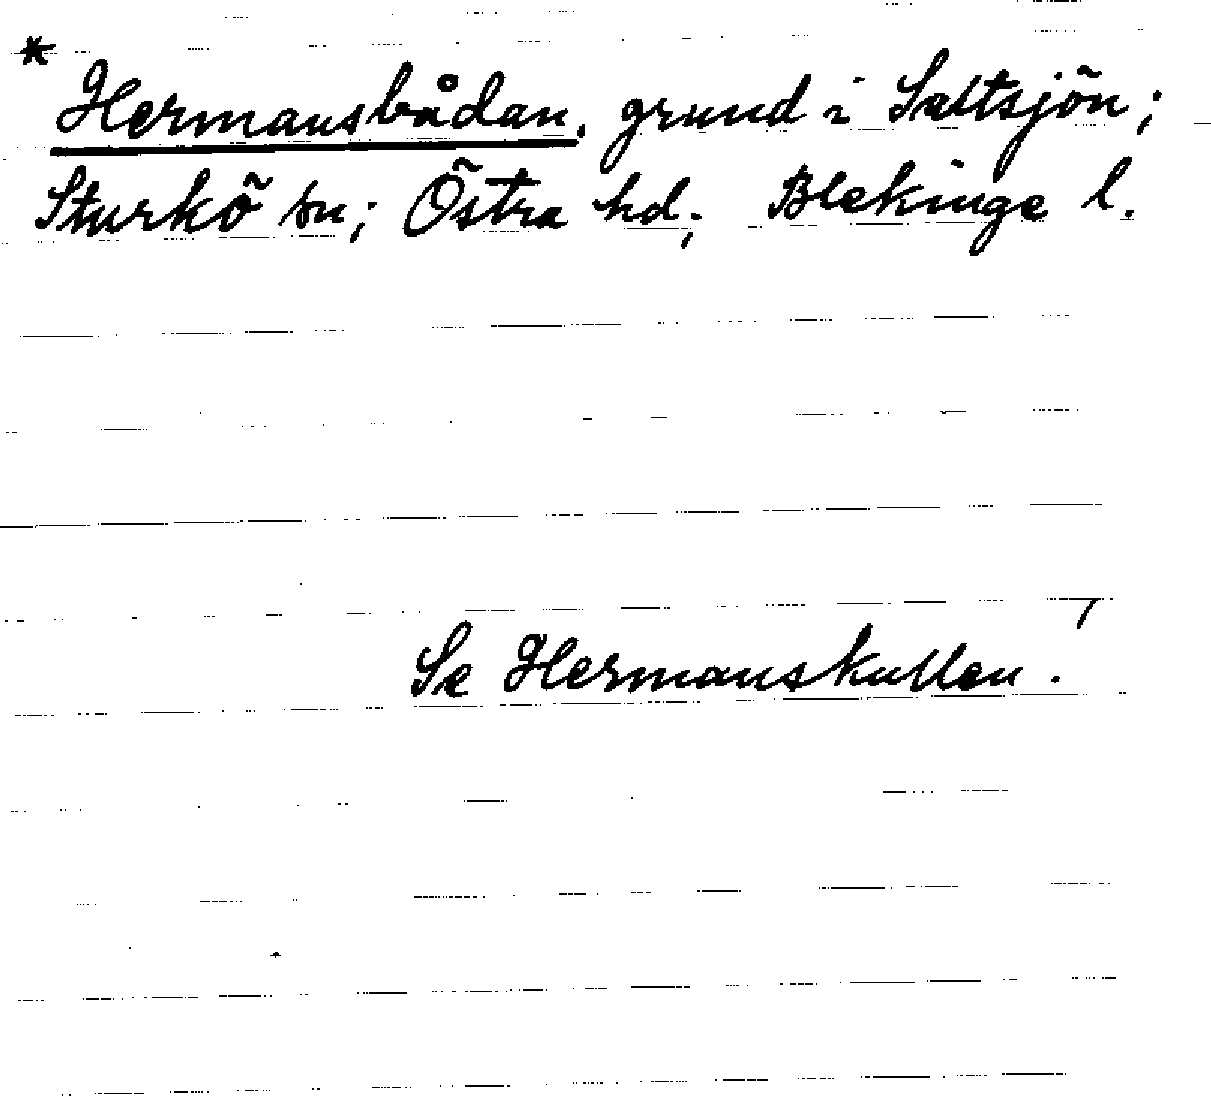 * Hermansbådan, grund i Saltsjön;
Sturkö sn; Östra hd; Blekinge l.
Se Hermanskullen!